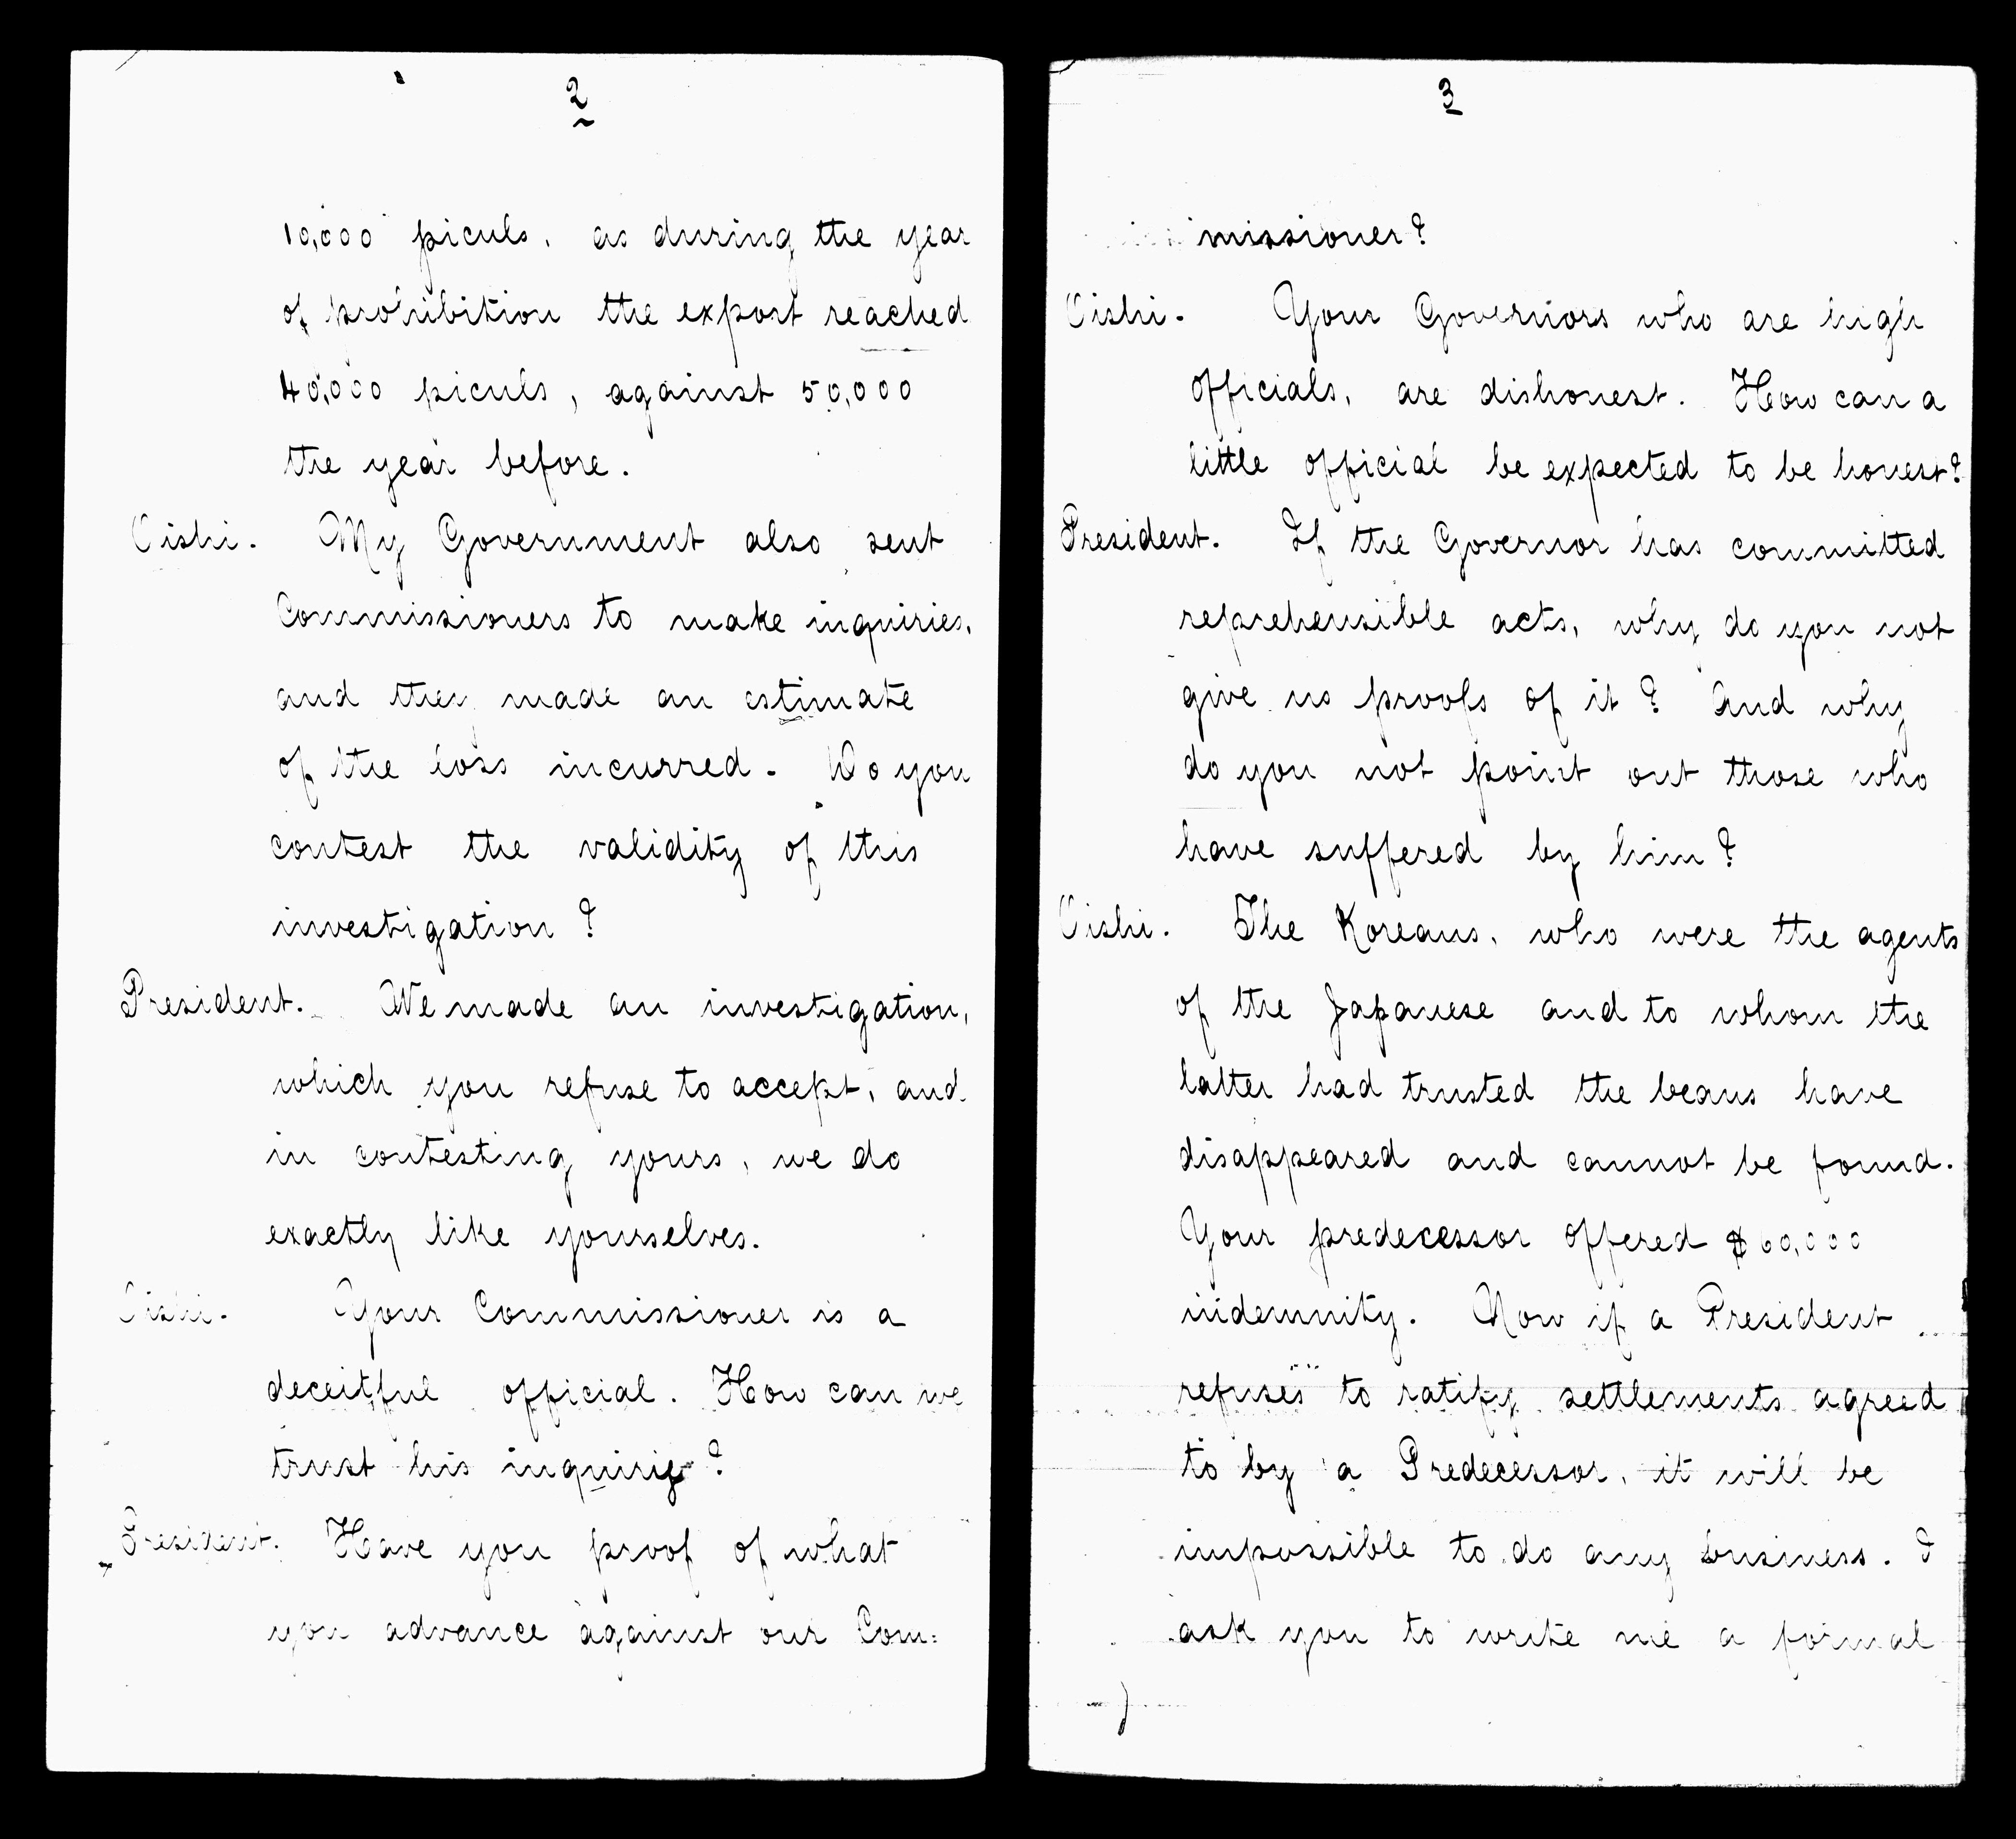 2
10,000 piculs, as during the year
of prohibition the export reached
40,000 piculs, against 50,000
the year before.
Oishi. My Government also sent
Commissioners to make inquiries,
and they made an estimate
of the loss incurred. Do you
contest the validity of this
investigation?
President. We made an investigation,
which you refuse to accept, and
in contesting yours, we do
exactly like yourselves.
Oishi. Your Commissioner is a
deceitful official. How can we
trust his inquiries?
President. Have you proof of what
you advance against our Com=
3
missioner?
Oishi. Your Governors who are high
officials, are dishonest. How can a
little official be expected to be honest?
President. If the Governor has committed
reprehensible acts, why do you not
give us proofs of it? And why
do you not point out those who
have suffered by him?
Oishi. The Koreans, who were the agents
of the Japanese and to whom the
latter had trusted the beans have
disappeared and cannot be found.
Your predecessor offered $60,000
indemnity. Now if a President
refuses to ratify settlements agreed
to by a Predecessor, it will be
impossible to do any business. I
ask you to write me a formal